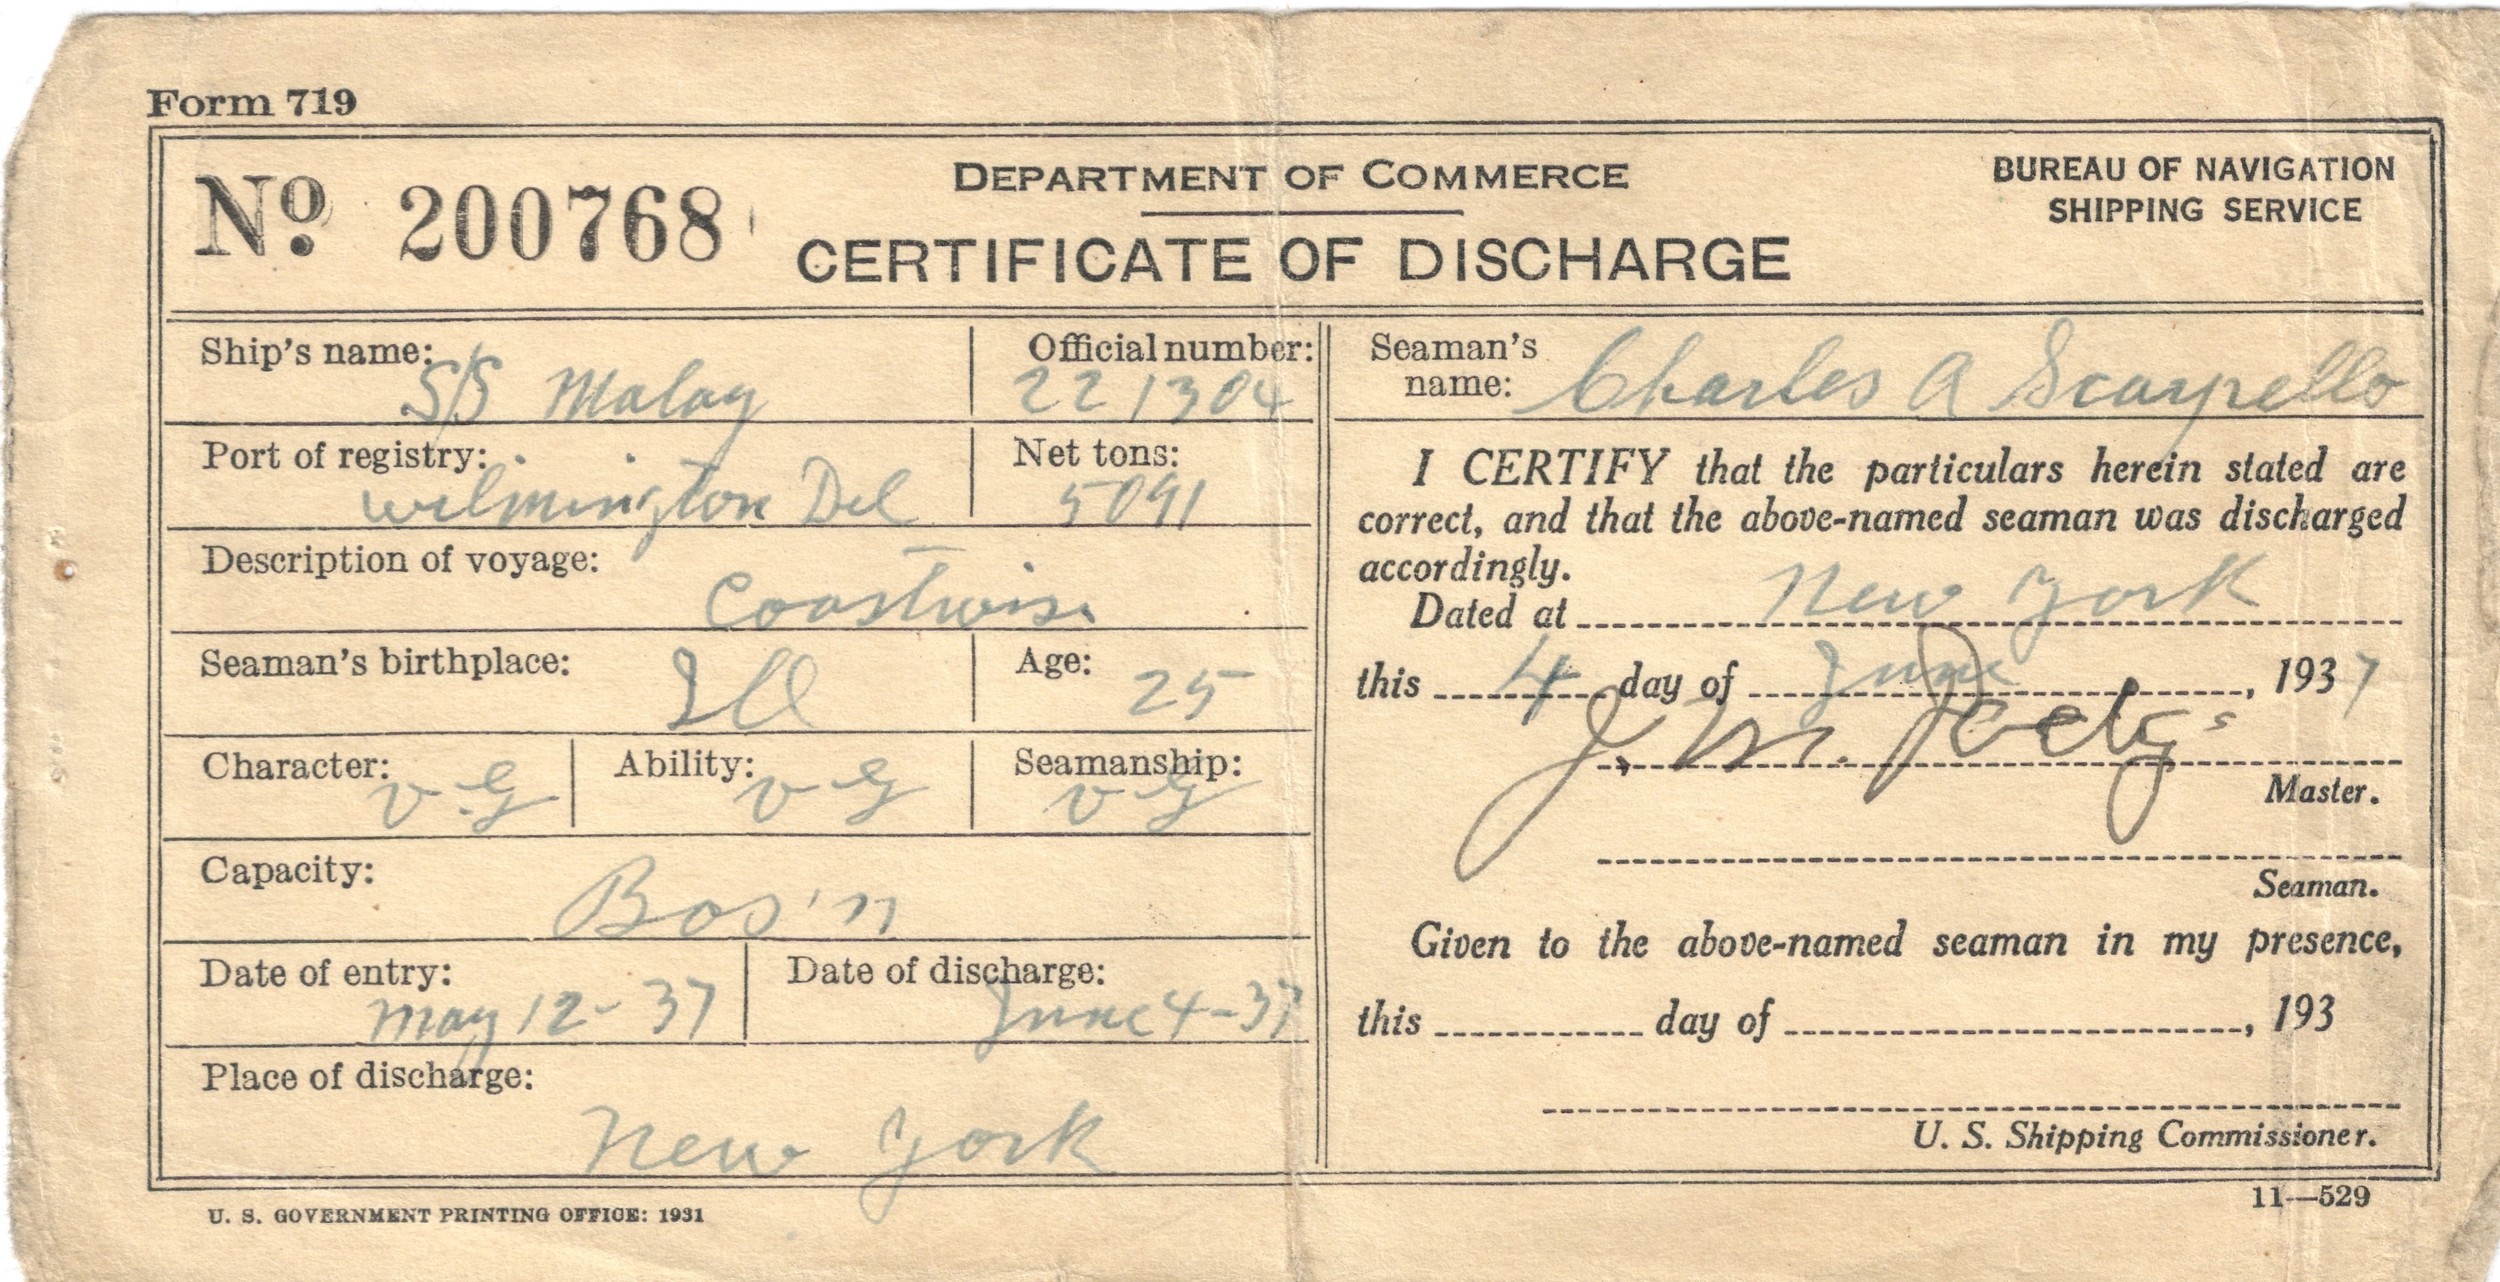 Form 719
No. 200768
DEPARTMENT OF COMMERCE
CERTIFICATE OF DISCHARGE
BUREAU OF NAVIGATION
SHIPPING SERVICE
Ship's name: S/S Malay
Official number: 221304
Port of registry: Wilmington Del
Net tons: 5091
Description of voyage: Coastwise
Seaman's birthplace: Ill
Age: 25
Character: V.G
Ability: V G
Seamanship: V G
Capacity: Bos'n
Date of entry: May 12-37
Date of discharge: June 4-37
Place of discharge: New York
Seaman's name: Charles A Scarpello
I CERTIFY that the particulars herein stated are
correct, and that the above-named seaman was discharged
accordingly.
Dated at New York
this 4 day of June, 1937
J. M.
Master.
Seaman.
Given to the above-named seaman in my presence,
this day of , 193
U. S. Shipping Commissioner.
U. S. GOVERNMENT PRINTING OFFICE: 1931
11—529